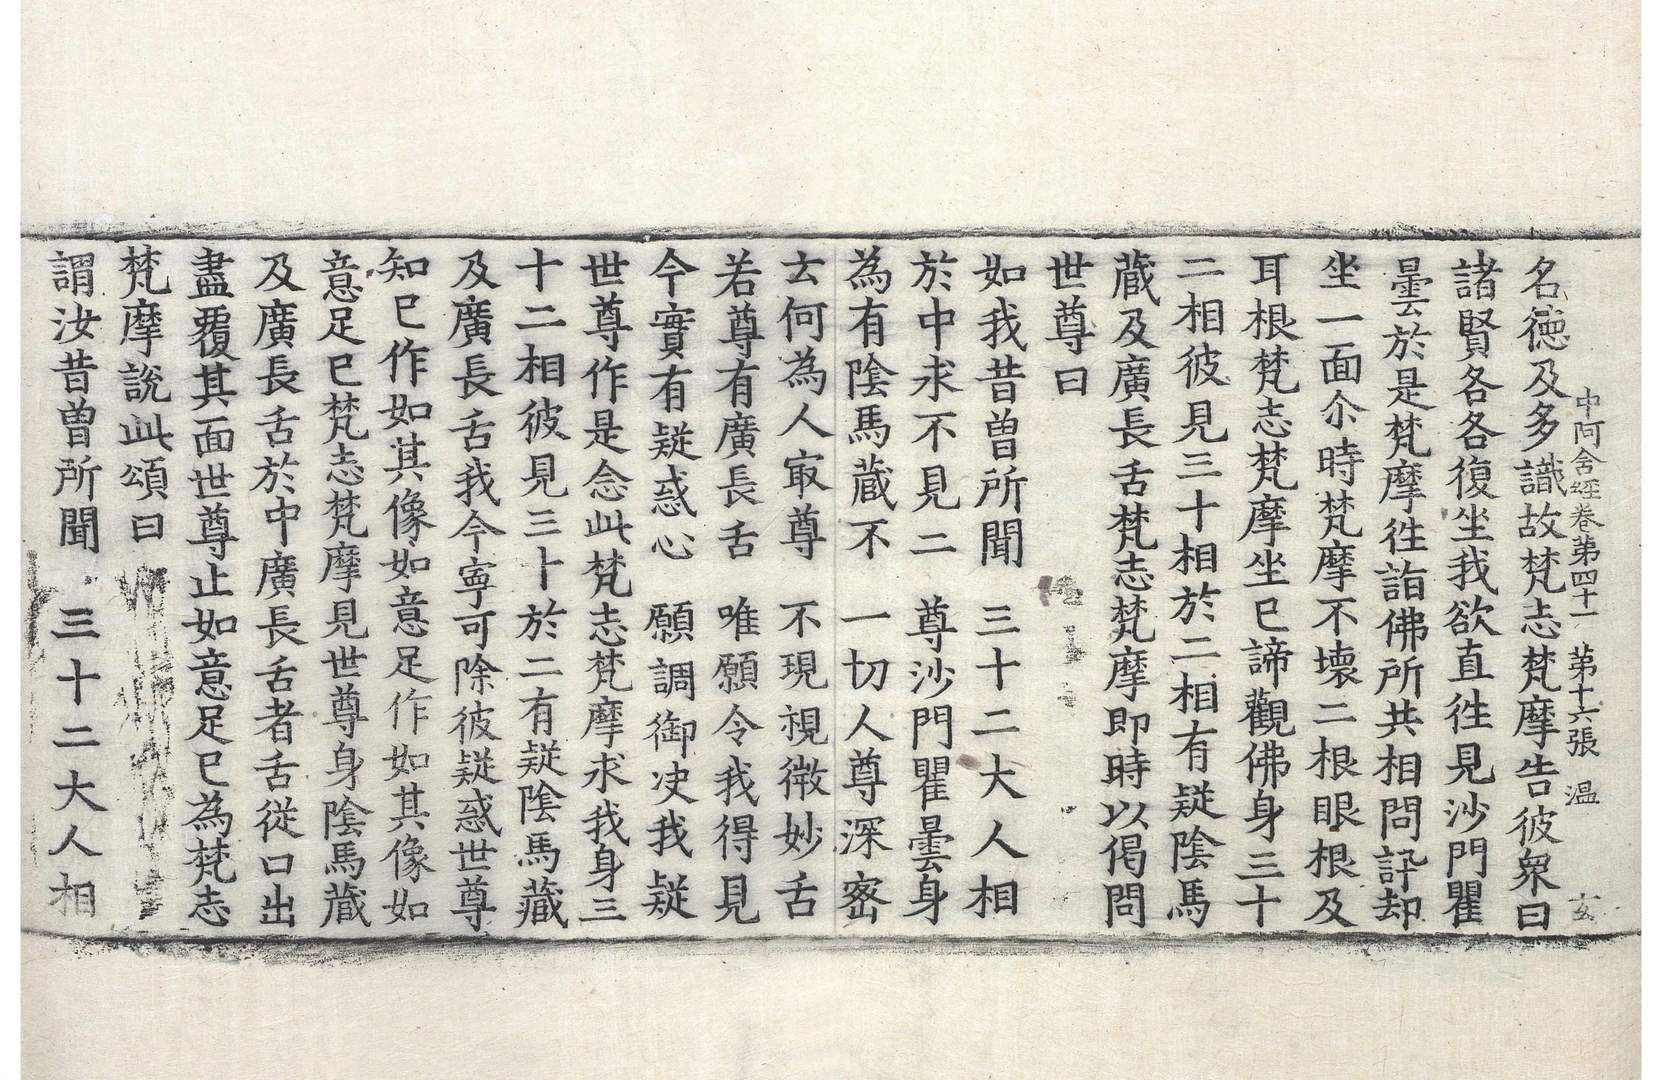 中阿含經卷第四十一 第十六張 温
名德及多識故梵志梵摩告彼衆曰
諸賢各各復坐我欲直徃見沙門瞿
曇於是梵摩徃詣佛所共相問訊却
坐一面尒時梵摩不壞二根眼根及
耳根梵志梵摩坐已諦觀佛身三十
二相彼見三十相於二相有疑陰馬
藏及廣長舌梵志梵摩即時以偈問
世尊曰
如我昔曾所聞 三十二大人相
於中求不見二 尊沙門瞿曇身
為有陰馬藏不 一切人尊深密
云何為人㝡尊 不現視微妙舌
若尊有廣長舌 唯願令我得見
今實有疑惑心 願調御决我疑
世尊作是念此梵志梵摩求我身三
十二相彼見三十於二有疑陰馬藏
及廣長舌我今寧可除彼疑惑世尊
知已作如其像如意足作如其像如
意足已梵志梵摩見世尊身陰馬藏
及廣長舌於中廣長舌者舌從口出
盡覆其面世尊止如意足已為梵志
梵摩說此頌曰
謂汝昔曾所聞 三十二大人相